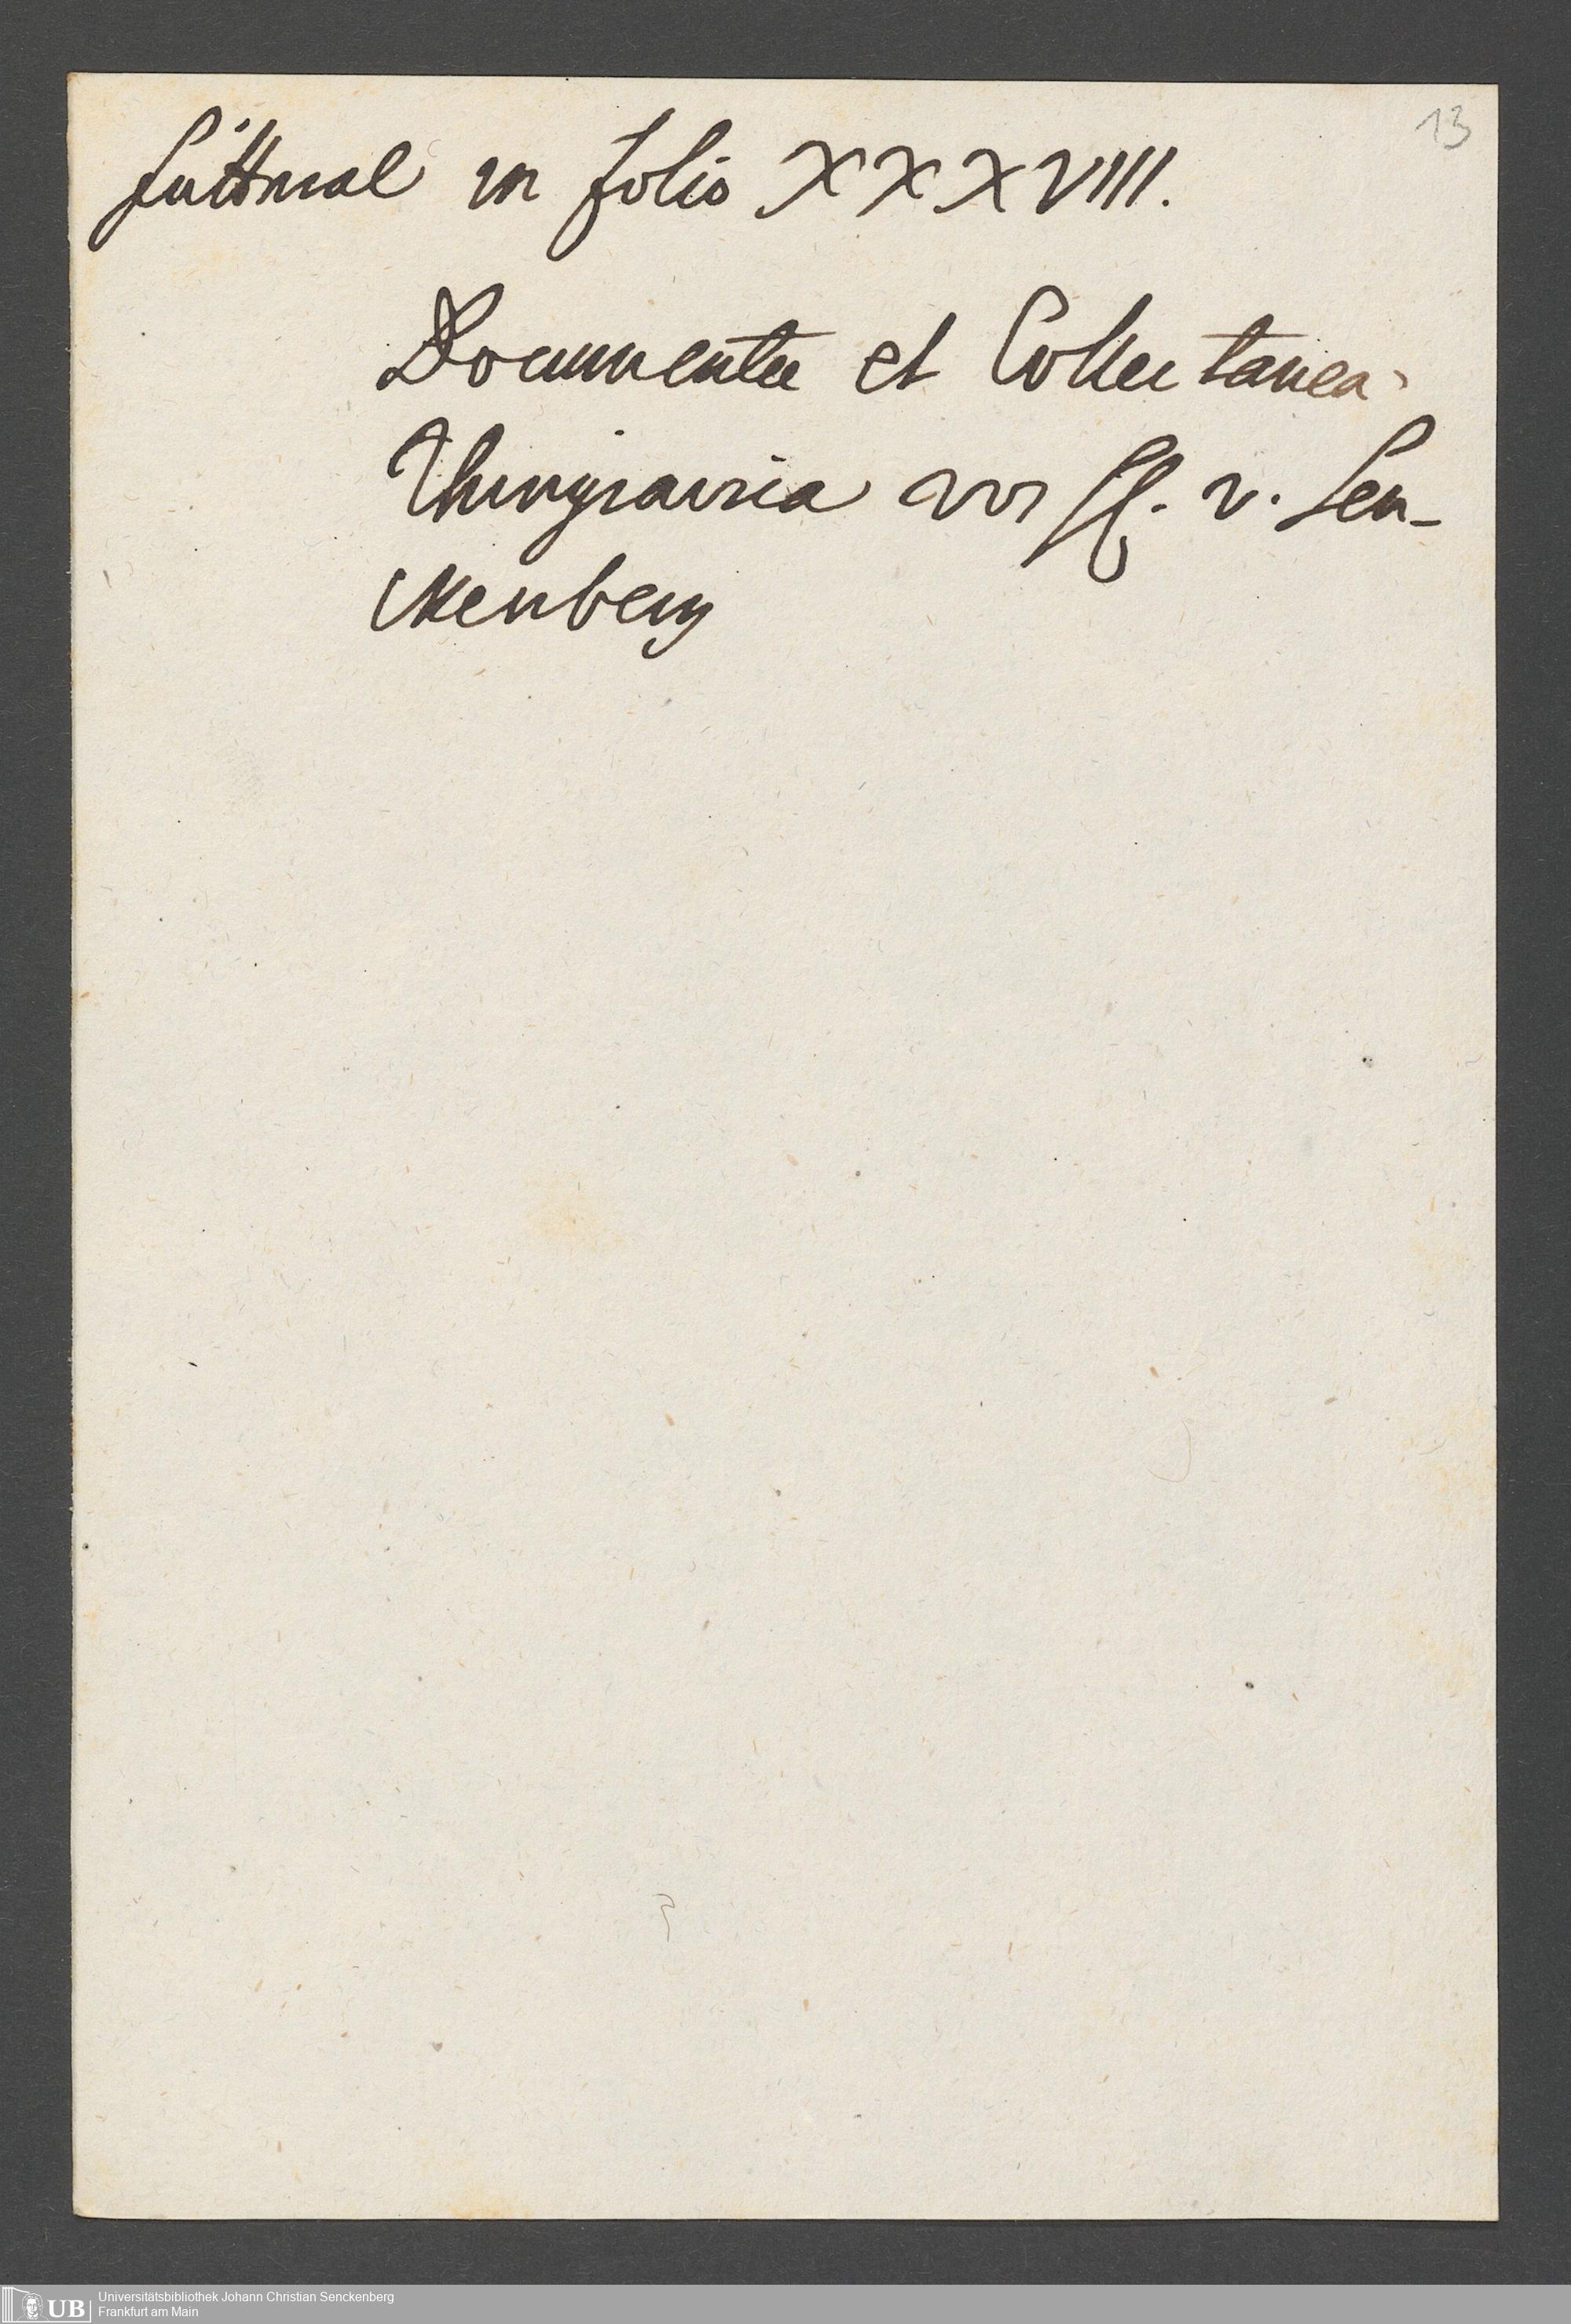 13
Futtural in folio XXXVIII.
Documenta et Collectanea
Rhingravica von H. v. Sen-
ckenberg
UB
Universitätsbibliothek Johann Christian Senckenberg
Frankfurt am Main